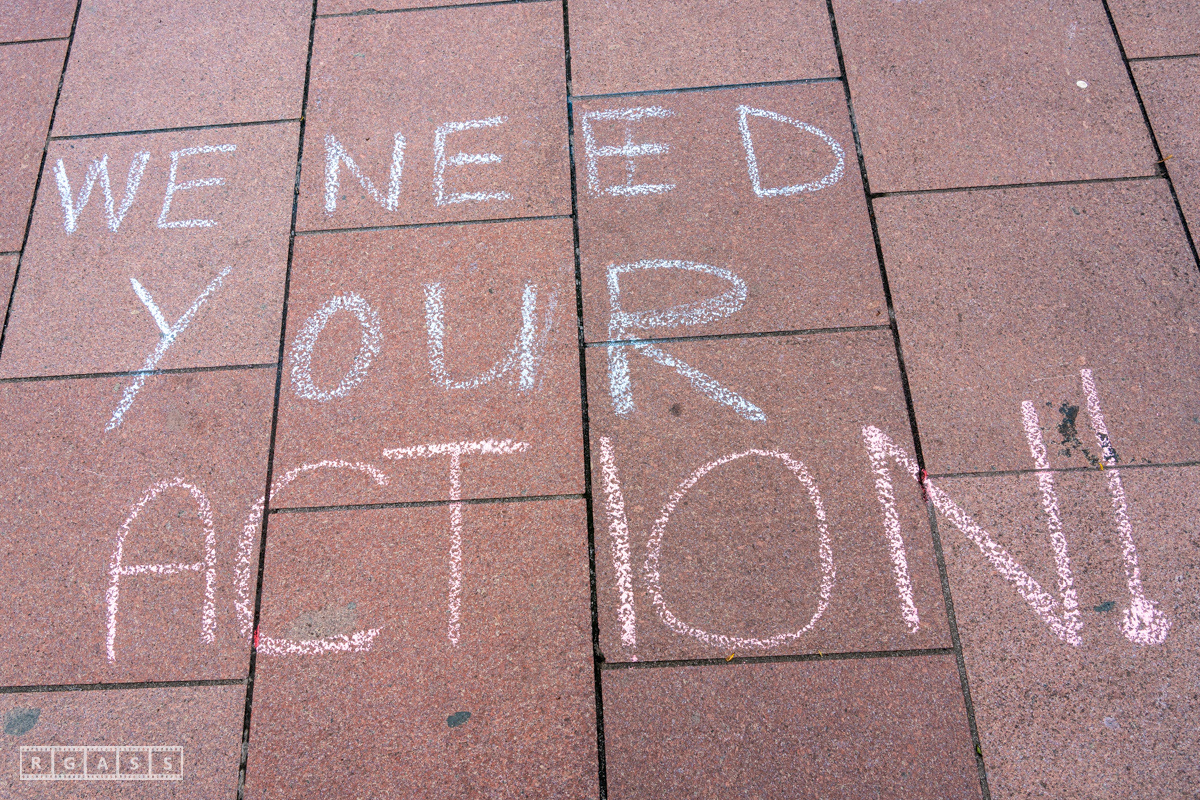 WE NEED
YOUR
ACTION!
RGASS